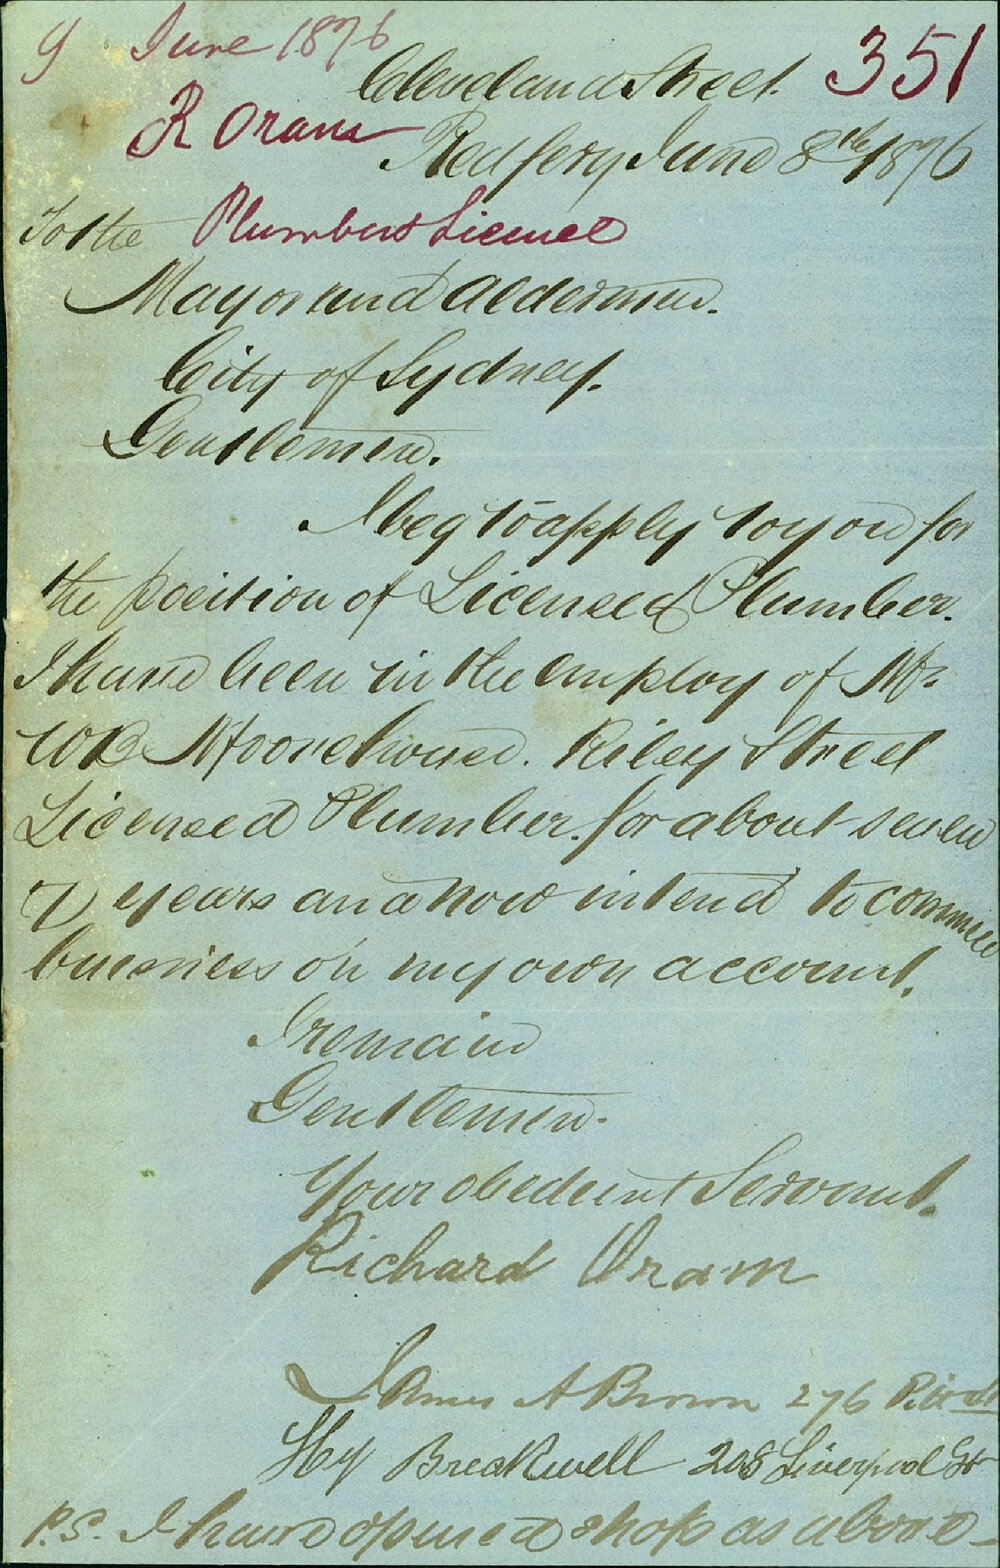 9 June 1876
351
Cleveland Street.
R Oram
Redfern June 8th 1876
To the
Plumbers Licence
Mayor and Aldermen.
City of Sydney.
Gentlemen.
I beg to apply to you for
the position of Licensed Plumber.
I have been in the employ of Mr
W B Moorehouse. Riley Street
Licensed Plumber. for about seven
(7) years and now intend to commence
business on my own account.
I remain
Gentlemen.
Your obedient Servant.
Richard Oram
James A Brown 276 Pitt St
Hy Breakwell 208 Liverpool St
P.S. I have opened shop as above